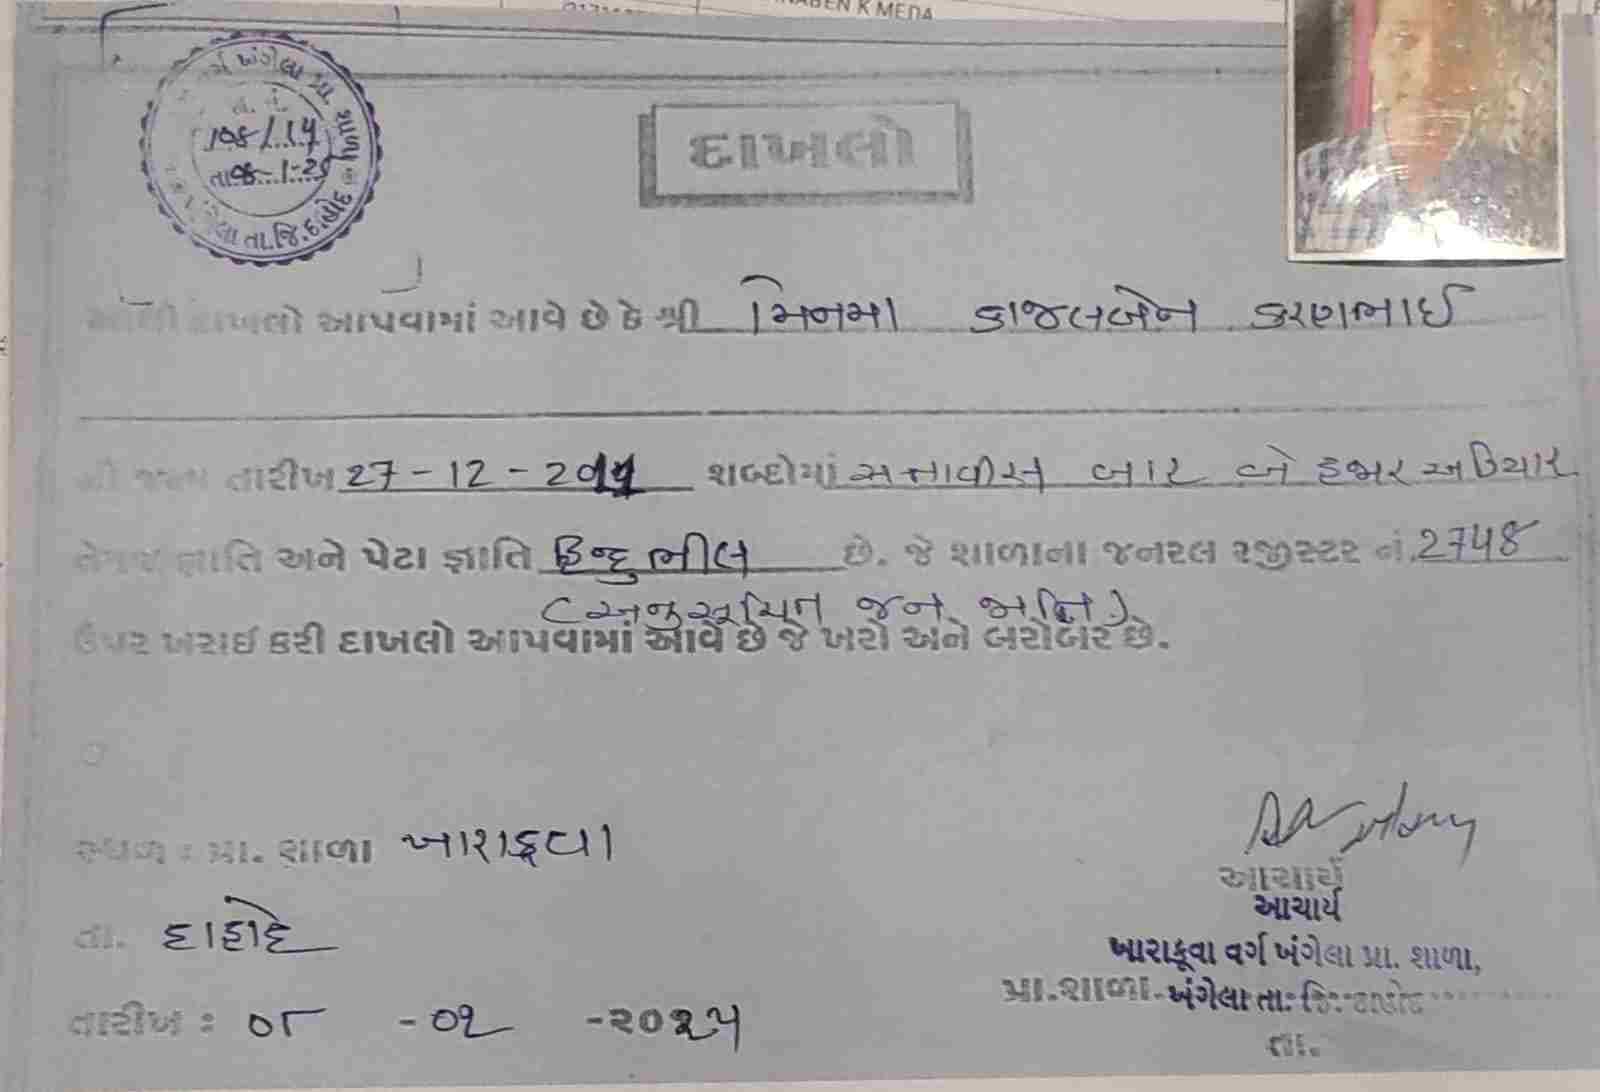 BEN K MEDA
વર્ગ ખંગેલા પ્રા. શાળા
તા.જિ.દાહોદ
દાખલો
આથી દાખલો આપવામાં આવે છે કે શ્રી મિનમા કાજલબેન કરણભાઈ
ની જન્મ તારીખ 27-12-2011 શબ્દોમાં સત્તાવીસ બાર બે હજાર અગિયાર
તેમજ જ્ઞાતિ અને પેટા જ્ઞાતિ હિન્દુ ભીલ છે. જે શાળાના જનરલ રજીસ્ટર નં. 2748
(અનુસૂચિત જન જાતિ)
ઉપર ખરાઈ કરી દાખલો આપવામાં આવે છે જે ખરો અને બરોબર છે.
સ્થળ : પ્રા. શાળા ખારાકુવા
તા. દાહોદ
તારીખ : ૦૮ -૦૧ -૨૦૨૫
આચાર્ય
આચાર્ય
ખારાકૂવા વર્ગ ખંગેલા પ્રા. શાળા,
પ્રા.શાળા. ખંગેલા તા. જિ. દાહોદ
તા.